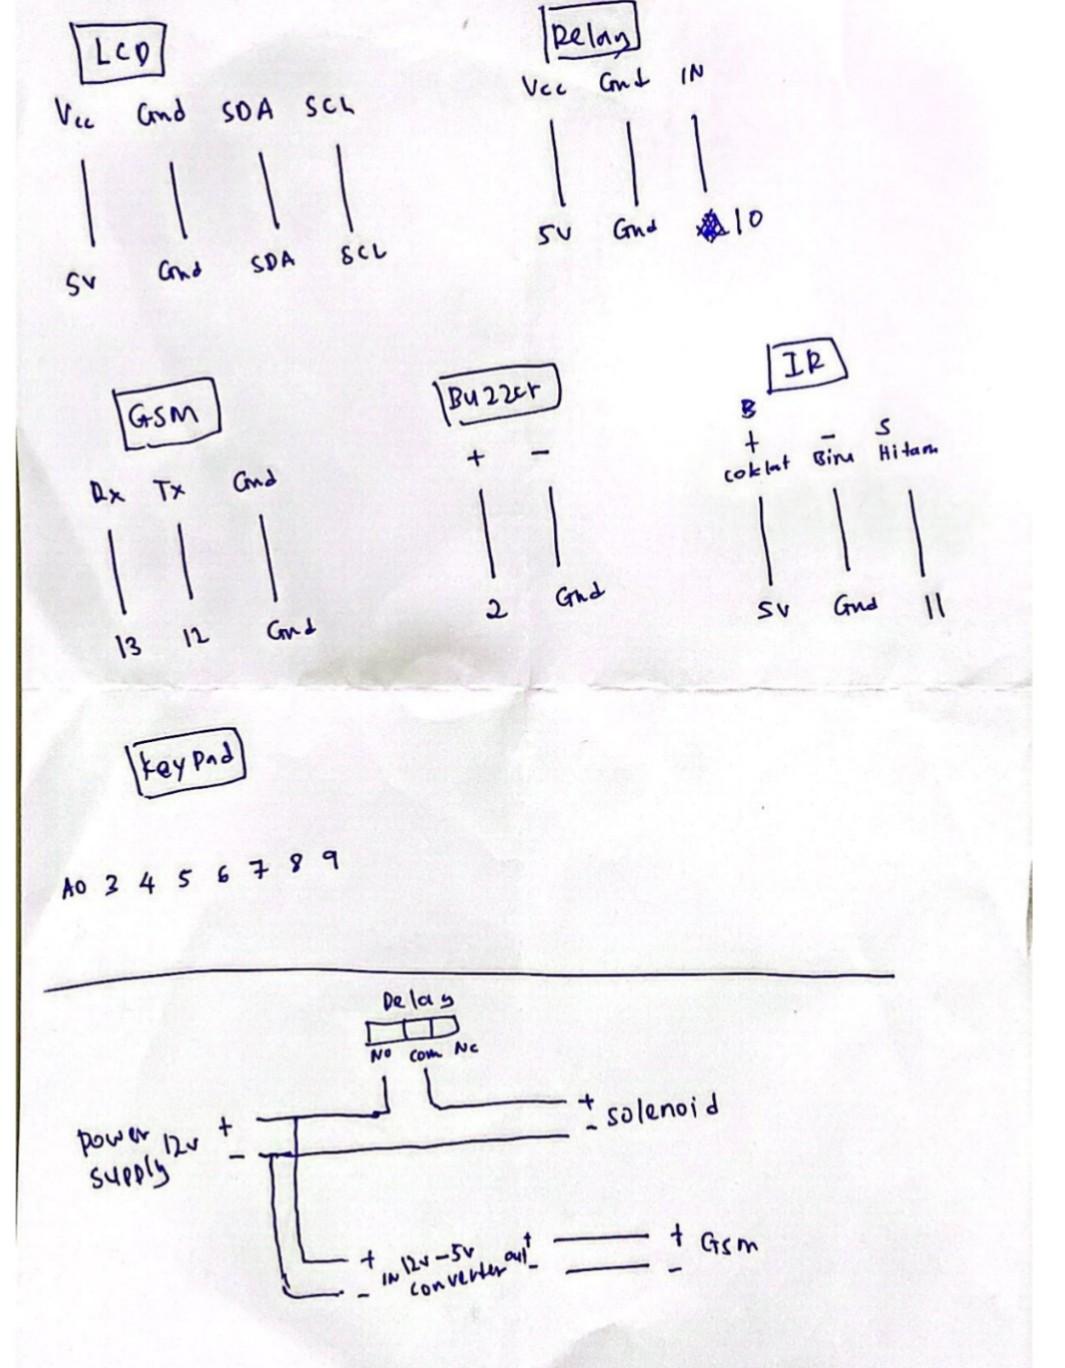 LCD
Vcc Gnd SDA SCL
5V Gnd SDA SCL
Relay
Vcc Gnd IN
5V Gnd 10
GSM
Rx Tx Gnd
13 12 Gnd
Buzzer
+ -
2 Gnd
IR
B
+ - S
coklat Biru Hitam
5V Gnd 11
keypad
A0 3 4 5 6 7 8 9
Relay
NO com NC
power supply 12v + -
+ - solenoid
+ - IN 12v-5v converter out + -
+ - Gsm